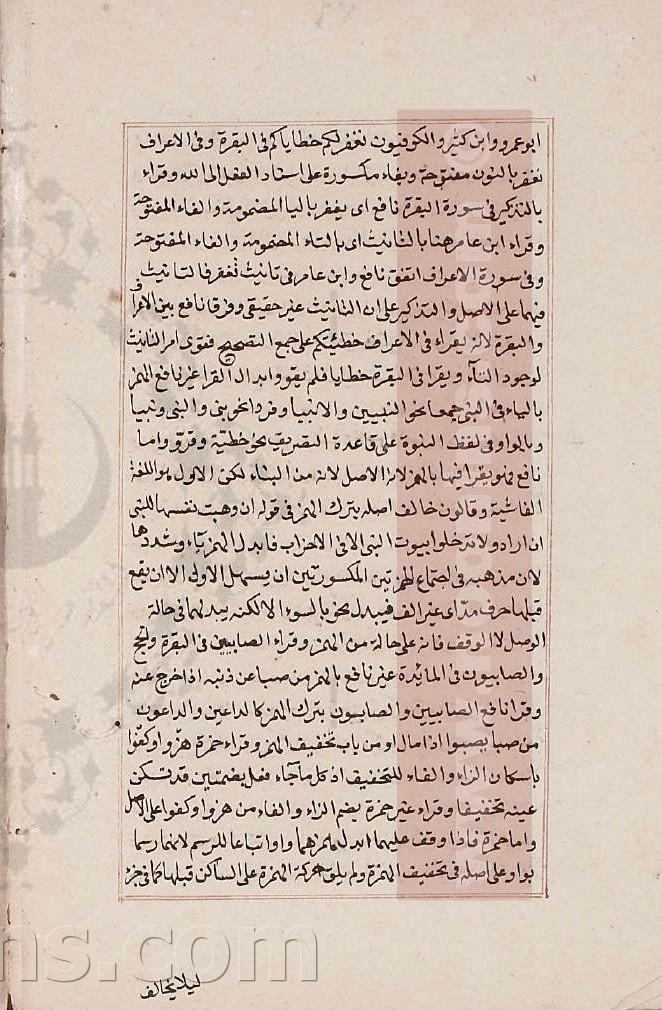 ابو عمرو وابن كثير والكوفيون نغفر لكم خطاياكم فى البقرة وفى الاعراف
نغفر بالنون مفتوحة وبفاء مكسورة على اسناد الفعل الى الله وقراء
بالتذكير فى سورة البقرة نافع اى يغفر باليا المضمومة والفاء المفتوحة
وقراء ابن عامر هنا بالتانيث اى بالتاء المضمومة والفاء المفتوحة
وفى سورة الاعراف اتفق نافع وابن عامر فى تانيث تغفر فالتانيث
فيهما على الاصل والتذكير على ان التانيث غير حقيقى وفرق نافع بين الاعراف
والبقرة لانه يقراء فى الاعراف خطيئتكم على جمع التصحيح فقوى امر التانيث
لوجود التآء ويقرا فى البقرة خطايا فلم يقو وابدال القرا غير نافع الهمز
بالياء فى النبى جمعا نحو النبيين والانبيا وفردا نحو نبى والنبى ونبيا
وبالواو فى لفظ النبوة على قاعدة التصريف نحو خطية وقرو واما
نافع فهو يقرا فيها بالهمز لانه الاصل لانه من النباء لكن الاول هو اللغة
الفاشية وقالون خالف اصله بترك الهمز فى قوله ان وهبت نفسها للنبى
ان اراد ولا تدخلوا بيوت النبى الا فى الاحزاب فابدل الهمز ياء وشددها
لان مذهبه فى اجتماع الهمزتين المكسورتين ان يسهل الاولى الا ان يقع
قبلها حرف مد اى غير الف فيبدل نحو بالسوء الا لكنه يبدلهما فى حالة
الوصل لا الوقف فانه على حاله من الهمز وقراء الصابيين فى البقرة والحج
والصابيون فى المائدة غير نافع بالهمز من صبا عن ذنبه اذا خرج عنه
وقرا نافع الصابيين والصابون بترك الهمز كالداعين والداعون
من صبا يصبوا اذا مال او من باب تخفيف الهمز وقراء حمزة هزوا وكفوا
باسكان الزاء والفاء للتخفيف اذ كل ما جاء فعل بضمتين قد تسكن
عينه تخفيفا وقراء غير حمزة بضم الزاء والفاء من هزوا وكفوا على الاصل
واما حمزة فاذا وقف عليهما ابدل همزهما واوا اتباعا للرسم لانهما رسما
بواو على اصله فى تخفيف الهمزة ولم يلق حركة الهمزة على الساكن قبلها كما فى جزء
ليلا يخالف
ns.com